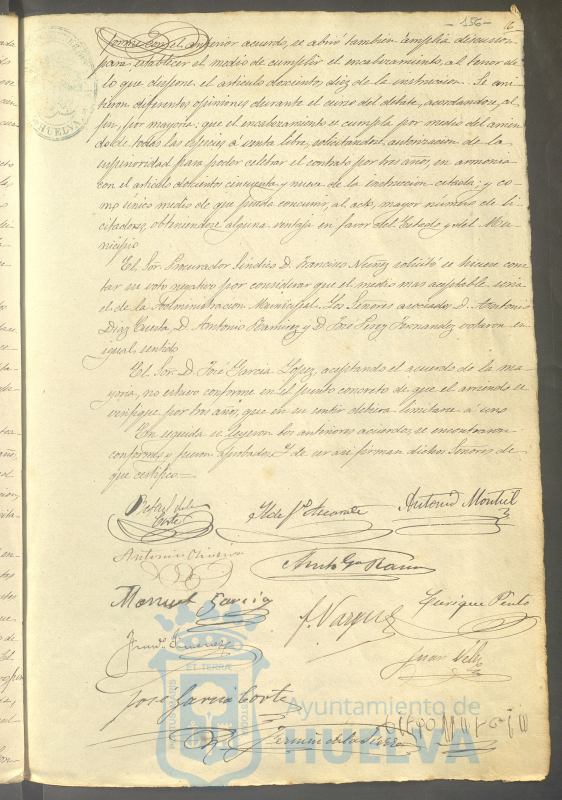 - 156 -
anterior acuerdo, se abrió también amplia discusión
para establecer el medio de cumplir el encabezamiento, al tenor de
lo que dispone el artículo doscientos diez de la instrucción. Se emi
tieron diferentes opiniones durante el curso del debate, acordandose, al
fin, por mayoría: que el encabezamiento se cumpla por medio del arrien
do de todas las especies a venta libre, solicitandose autorización de la
superioridad para poder celebrar el contrato por tres años, en armonía
con el artículo doscientos cincuenta y nueve de la instrucción citada; y co-
mo único medio de que pueda concurrir, al acto, mayor número de li
citadores, obteniendose alguna ventaja en favor del Estado y del Mu-
nicipio
El Sor. Procurador Síndico D. Francisco Nuñez solicitó se hiciese cons
tar su voto negativo por considerar que el medio mas aceptable sería
el de la Administracion Municipal. Los Señores asociados D. Antonio
Diaz Cuesta, D. Antonio Ramirez y D. José Perez Fernandez votaron en
igual sentido
El Sor. D. José García López, aceptando el acuerdo de la ma
yoría, no estuvo conforme en el punto concreto de que el arriendo se
verifique por tres años, que en su sentir debiera limitarse á uno
En seguida se leyeron los anteriores acuerdos, se encontraron
conformes y fueron aprobados. Y de ser así firman dichos Señores de
que certifico =
Antonio Montiel
Antonio
Manuel García
J. Vazquez
Enrique
Juan
José García Cortes
HUELVA
PORTUS MARIS
ET TERRÆ
CUSTODIA
Ayuntamiento de
HUELVA